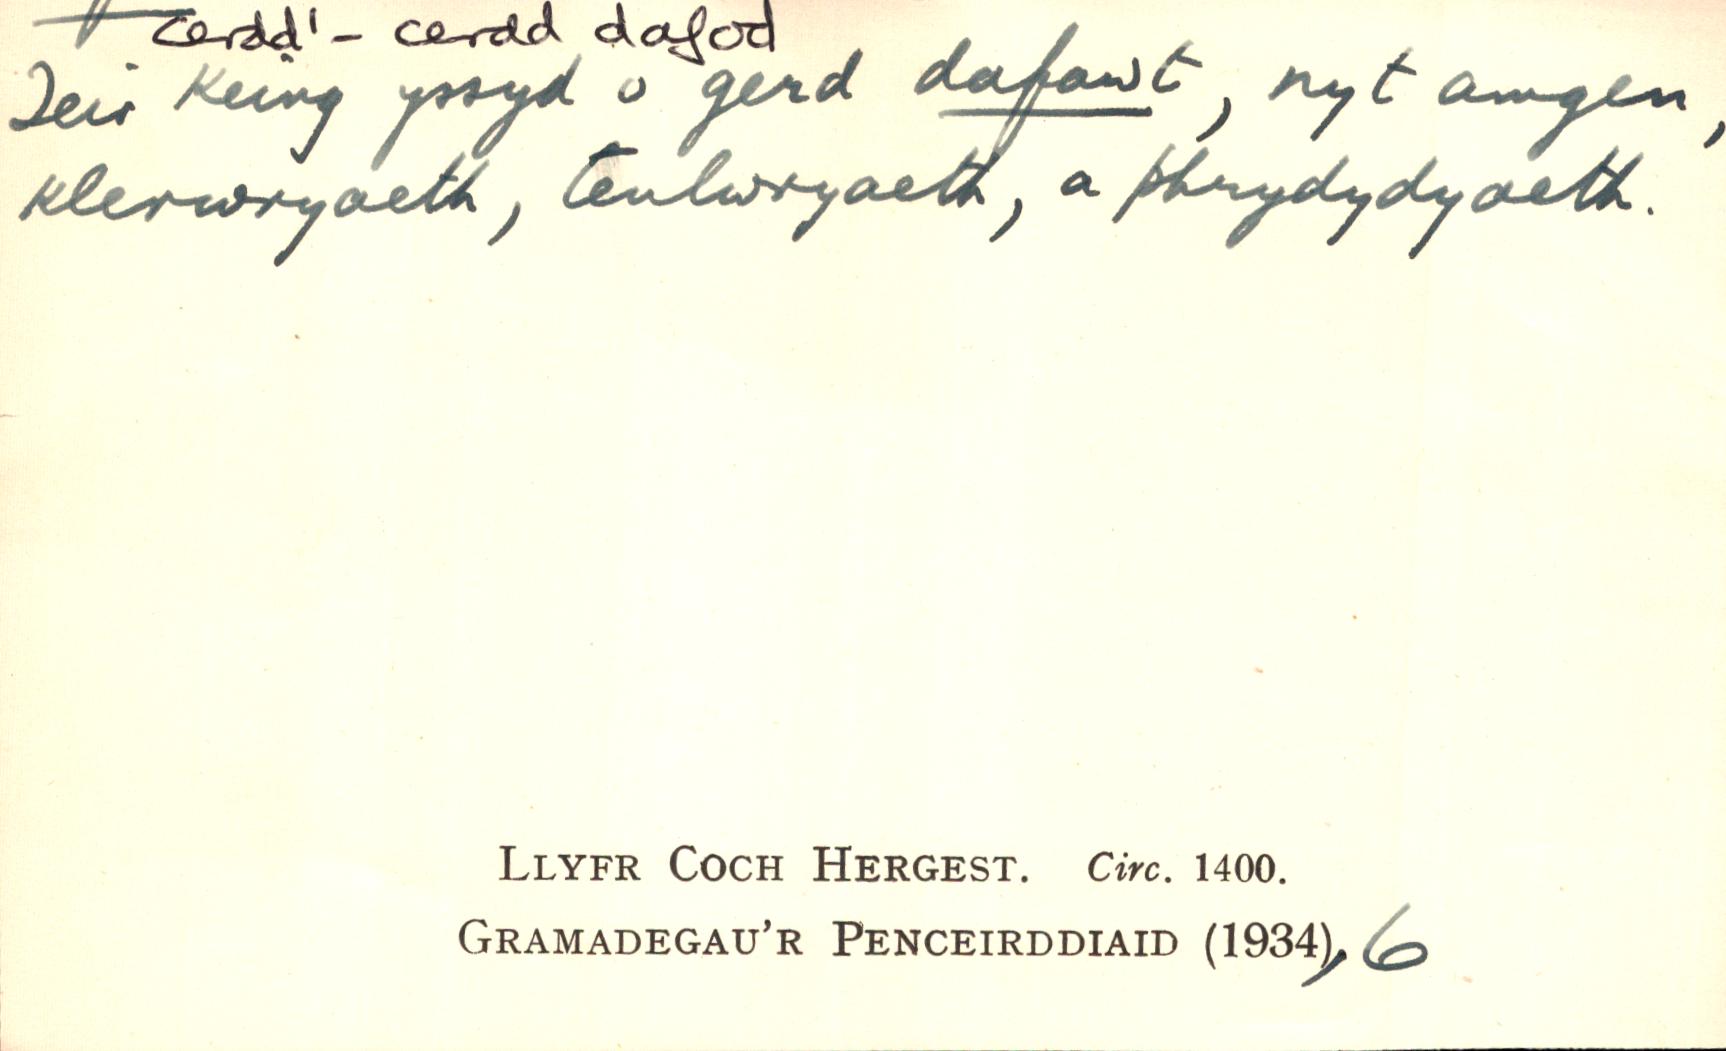 cerdd¹ - cerdd dafod
Teir keing yssyd o gerd dafawt, nyt amgen,
klerwryaeth, teulwryaeth, a phrydydyaeth.
LLYFR COCH HERGEST. Circ. 1400.
GRAMADEGAU'R PENCEIRDDIAID (1934), 6